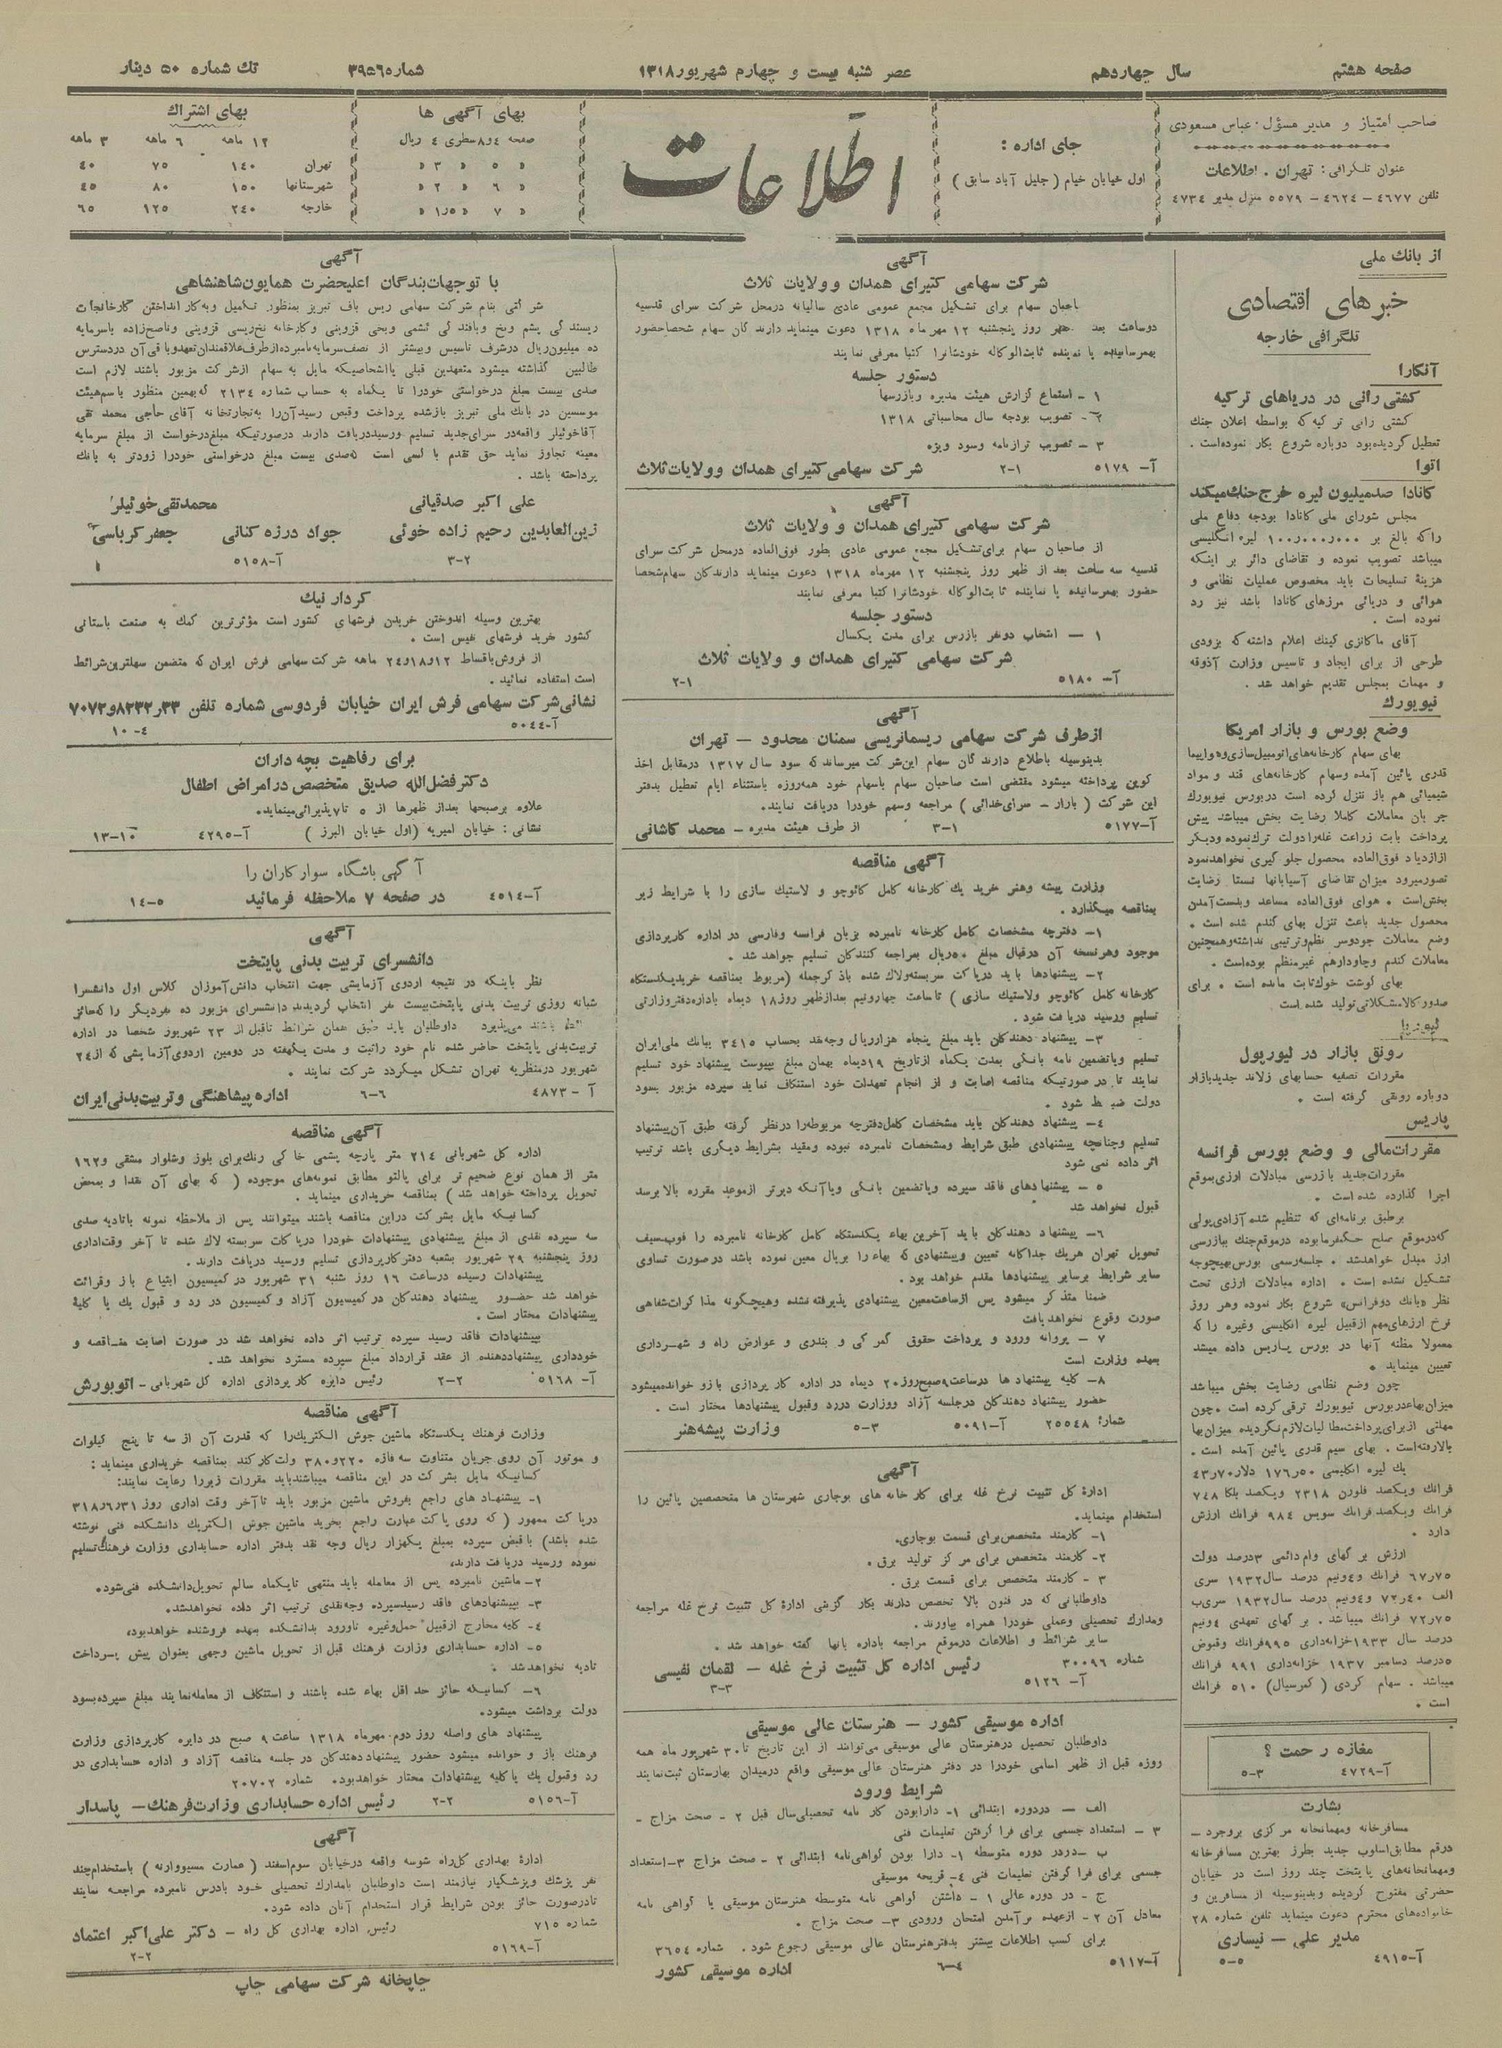 صفحه هشتم
سال چهاردهم
عصر شنبه بیست و چهارم شهریور ۱۳۱۸
شماره ۳۹۵۶
تك شماره ۵۰ دینار
صاحب امتیاز و مدیر مسؤل: عباس مسعودی
عنوان تلگرافی: تهران . اطلاعات
تلفن ۴۶۷۷ – ۴۶۲۴ – ۵۵۷۹ منزل مدیر ۴۷۳۴
جای اداره :
اول خیابان خیام ( جلیل آباد سابق )
اطلاعات
بهای آگهی ها
صفحه ۴و۸ سطری ۴ ریال
« ۵ « ۳ «
« ۶ « ۲ «
« ۷ « ۱٫۵ «
بهای اشتراك
۱۲ ماهه ۶ ماهه ۳ ماهه
تهران ۱۴۰ ۷۵ ۴۰
شهرستانها ۱۵۰ ۸۰ ۴۵
خارجه ۲۴۰ ۱۲۵ ۶۵
از بانك ملی
خبرهای اقتصادی
تلگرافی خارجه
آنکارا
کشتی رانی در دریاهای ترکیه
کشتی رانی ترکیه که بواسطه اعلان جنك
تعطیل گردیده‌بود دوباره شروع بکار نموده‌است .
اتوا
کانادا صدمیلیون لیره خرج جنك میکند
مجلس شورای ملی کانادا بودجه دفاع ملی
را که بالغ بر ۱۰۰٫۰۰۰٫۰۰۰ لیره انگلیسی
میباشد تصویب نموده و تقاضای دائر بر اینکه
هزینهٔ تسلیحات باید مخصوص عملیات نظامی و
هوائی و دریائی مرزهای کانادا باشد نیز رد
نموده است .
آقای ماکانزی کینك اعلام داشته که بزودی
طرحی از برای ایجاد و تاسیس وزارت آذوقه
و مهمات بمجلس تقدیم خواهد شد .
نیویورك
وضع بورس و بازار امریکا
بهای سهام کارخانه‌های اتومبیل‌سازی و هواپیما
قدری پائین آمده وسهام کارخانه‌های قند و مواد
شیمیائی هم باز تنزل کرده است در بورس نیویورك
جریان معاملات کاملا رضایت بخش میباشد پیش
پرداخت بابت زراعت غله‌را دولت ترك‌نموده ودیگر
ازازدیاد فوق‌العاده محصول جلو گیری نخواهدنمود
تصور میرود میزان تقاضای آسیابانها نسبتا رضایت
بخش‌است . هوای فوق‌العاده مساعد وبدست‌آمدن
محصول جدید باعث تنزل بهای گندم شده است .
وضع معاملات جودوسر نظم‌وترتیبی نداشته‌وهمچنین
معاملات کندم وچاودارهم غیرمنظم بوده‌است .
بهای گوشت خوك‌ثابت مانده است . برای
صدور کالامشکلاتی تولید شده است
رونق بازار در لیورپول
مقررات تصفیه حسابهای زلاند جدیدبازار
دوباره رونقی گرفته است .
پاریس
مقررات مالی و وضع بورس فرانسه
مقررات‌جدید بازرسی مبادلات ارزی بموقع
اجرا گذارده شده است .
برطبق برنامه‌ای که تنظیم شده آزادی‌پولی
که‌درموقع صلح حکمفرمابوده درموقع‌جنك ببازرسی
ارز مبدل خواهدشد . جلسه‌رسمی بورس بهیچوجه
تشکیل نشده است . اداره مبادلات ارزی تحت
نظر «بانك دوفرانس» شروع بکار نموده وهر روز
نرخ ارزهای‌مهم ازقبیل لیره انکلیسی وغیره را که
معمولا مظنه آنها در بورس پاریس داده میشد
تعیین مینماید .
چون وضع نظامی رضایت بخش میباشد
میزان بهادر بورس نیویورك ترقی کرده است . چون
مهلتی ازبرای‌پرداخت مطالبات‌لازم‌نگردیده میزان‌بها
بالارفته‌است . بهای سیم قدری پائین آمده است .
یك لیره انکلیسی ۱۷۶٫۵۰ دلار ۴۳٫۷۰
فرانك ویکصد فلورن ۲۳۱۸ ویکصد بلکا ۷۴۸
فرانك ویکصد فرانك سویس ۹۸۴ فرانك ارزش
دارد .
ارزش برگهای وام دائمی ۳درصد دولت
۶۷٫۷۵ فرانك و۴ونیم درصد سال ۱۹۳۲ سری
الف ۷۲٫۴۰ و۴ونیم درصد سال ۱۹۳۲ سری‌ب
۷۲٫۷۵ فرانك میباشد . برگهای تعهدی ۴ونیم
درصد سال ۱۹۳۳خزانه‌داری ۹۹۵فرانك وقبوض
۵درصد دسامبر ۱۹۳۷ خزانه‌داری ۹۹۱ فرانك
میباشد . سهام کردی ( کمرسیال ) ۵۱۰ فرانك
است .
مغازه رحمت ؟
آ-۴۷۲۹ ۳-۵
بشارت
مسافرخانه ومهمانخانه مرکزی بروجرد –
درقم مطابق‌اسلوب جدید بطرز بهترین مسافرخانه
ومهمانخانه‌های پایتخت چند روز است در خیابان
حضرتی مفتوح گردیده وبدینوسیله از مسافرین و
خانواده‌های محترم دعوت مینماید تلفن شماره ۲۸
مدیر علی – نیساری
آ-۴۹۱۵ ۵-۵
آگهی
شرکت سهامی کتیرای همدان وولایات ثلاث
برای تشکیل مجمع عمومی عادی سالیانه درمحل شرکت سرای قدسیه
دوساعت بعد روز پنجشنبه ۱۲ مهرماه ۱۳۱۸ دعوت مینماید دارندگان سهام شخصاحضور
بهمرسانیده یا نماینده ثابت‌الوکاله خودشانرا کتبا معرفی نمایند
دستور جلسه
۱ – استماع گزارش هیئت مدیره وبازرسها
۲- تصویب بودجه سال محاسباتی ۱۳۱۸
۳ – تصویب ترازنامه وسود ویژه
آ- ۵۱۷۹ ۱-۲ شرکت سهامی کتیرای همدان وولایات ثلاث
آگهی
شرکت سهامی کتیرای همدان و ولایات ثلاث
از صاحبان سهام برای‌تشکیل مجمع عمومی عادی بطور فوق‌العاده درمحل شرکت سرای
قدسیه سه ساحت بعد از ظهر روز پنجشنبه ۱۲ مهرماه ۱۳۱۸ دعوت مینماید دارندگان سهام‌شخصا
حضور بهمرسانیده یا نماینده ثابت‌الوکاله خودشانرا کتبا معرفی نمایند
دستور جلسه
۱ – انتخاب دونفر بازرس برای مدت یکسال
شرکت سهامی کتیرای همدان و ولایات ثلاث
آ- ۵۱۸۰ ۱-۲
آگهی
ازطرف شرکت سهامی ریسمانریسی سمنان محدود – تهران
بدینوسیله باطلاع دارندگان سهام این‌شرکت میرساند که سود سال ۱۳۱۷ درمقابل اخذ
کوپن پرداخته میشود مقتضی است صاحبان سهام باسهام خود همه‌روزه باستثناء ایام تعطیل بدفتر
این شرکت ( بازار – سرای‌خدائی ) مراجعه وسهم خودرا دریافت نمایند.
آ-۵۱۷۷ ۱-۳ از طرف هیئت مدیره – محمد کاشانی
آگهی مناقصه
وزارت پیشه وهنر خرید یك کارخانه کامل کائوچو و لاستیك سازی را با شرایط زیر
بمناقصه میگذارد .
۱- دفترچه مشخصات کامل کارخانه نامبرده بزبان فرانسه وفارسی در اداره کارپردازی
موجود وهرنسخه آن درقبال مبلغ ۵۰ریال بمراجعه کنندگان تسلیم خواهد شد .
۲- پیشنهادها باید درپاکت سربسته‌ولاك شده باذکرجمله (مربوط بمناقصه خریدیکدستگاه
کارخانه کامل کائوچو ولاستیك سازی ) تاساعت چهارونیم بعدازظهر روز۱۸ دیماه باداره‌دفتروزارتی
تسلیم ورسید دریافت شود .
۳- پیشنهاد دهندگان باید مبلغ پنجاه هزارریال وجه‌نقد بحساب ۳۴۱۵ ببانك ملی‌ایران
تسلیم ویاتضمین نامه بانکی بمدت یکماه ازتاریخ ۱۹دیماه بهمان مبلغ بپیوست پیشنهاد خود تسلیم
نمایند تا در صورتیکه مناقصه اصابت و از انجام تعهدلت خود استنکاف نماید سپرده مزبور بسود
دولت ضبط شود .
۴- پیشنهاد دهندگان باید مشخصات کامل‌دفترچه مربوطه‌را درنظر گرفته طبق آن‌پیشنهاد
تسلیم وچنانچه پیشنهادی طبق شرایط ومشخصات نامبرده نبوده ومقید بشرایط دیگری باشد ترتیب
اثر داده نمی شود
۵ – پیشنهادهای فاقد سپرده ویاتضمین بانکی ویاآنکه دیرتر ازموعد مقرره بالا برسد
قبول نخواهد شد
۶- پیشنهاد دهندگان باید آخرین بهاء یکدستگاه کامل کارخانه نامبرده را فوب‌سیف
تحویل تهران هریك جداگانه تعیین وپیشنهادی که بهاء را بریال معین نموده باشد درصورت تساوی
سایر شرایط برسایر پیشنهادها مقدم خواهد بود .
ضمنا متذکر میشود پس ازساعت‌معین پیشنهادی پذیرفته‌نشده وهیچگونه مذاکرات‌شفاهی
صورت وقوع نخواهدیافت
۷ – پروانه ورود و پرداخت حقوق گمرکی و بندری و عوارض راه و شهرداری
بعهده وزارت است
۸- کلیه پیشنهاد ها درساعت ۹صبح‌روز ۲۰ دیماه در اداره کارپردازی بازو خوانده‌میشود
حضور پیشنهاد دهندگان درجلسه آزاد ووزارت دررد وقبول پیشنهادها مختار است .
شماره ۲۵۵۴۸ آ-۵۰۹۱ ۳-۵ وزارت پیشه‌هنر
آگهی
ادارهٔ کل تثبیت نرخ غله برای کارخانه های بوجاری شهرستان ها متخصصین پائین را
استخدام مینماید.
۱- کارمند متخصص‌برای قسمت بوجاری.
۲- کارمند متخصص برای مرکز تولید برق .
۳ – کارمند متخصص برای قسمت برق .
داوطلبانی که در فنون بالا تخصص دارند بکار گزینی ادارهٔ کل تثبیت نرخ غله مراجعه
ومدارك تحصیلی وعملی خودرا همراه بیاورند .
سایر شرائط و اطلاعات درموقع مراجعه باداره بانها گفته خواهد شد .
شماره ۳۰۰۹۶ رئیس اداره کل تثبیت نرخ غله – لقمان نفیسی
آ- ۵۱۲۶ ۳-۳
اداره موسیقی کشور – هنرستان عالی موسیقی
داوطلبان تحصیل درهنرستان عالی موسیقی میتوانند از این تاریخ تا ۳۰ شهریور ماه همه
روزه قبل از ظهر اسامی خودرا در دفتر هنرستان عالی موسیقی واقع درمیدان بهارستان ثبت‌نمایند
شرایط ورود
الف – دردوره ابتدائی ۱- دارابودن کار نامه تحصیلی‌سال قبل ۲ - صحت مزاج -
۳ – استعداد جسمی برای فرا گرفتن تعلیمات فنی
ب –دردر دوره متوسطه ۱- دارا بودن گواهی‌نامه ابتدائی ۲ - صحت مزاج ۳-استعداد
جسمی برای فرا گرفتن تعلیمات فنی ۴- قریحه موسیقی
ج – در دوره عالی ۱ - داشتن گواهی نامه متوسطه هنرستان موسیقی یا گواهی نامه
معادل آن ۲ - ازعهده برآمدن امتحان ورودی ۳- صحت مزاج .
برای کسب اطلاعات بیشتر بدفتر هنرستان عالی موسیقی رجوع شود . شماره ۳۶۵۴
آ-۵۱۱۷ ۴-۶ اداره موسیقی کشور
آگهی
با توجهات بندگان اعلیحضرت همایون شاهنشاهی
شرکتی بنام شرکت سهامی ریس باف تبریز بمنظور تکمیل وبه‌کار انداختن کارخانجات
قزوینی وکارخانه نخ‌ریسی قزوینی وناصح‌زاده باسرمایه
ده میلیون‌ریال درشرف تاسیس وبیشتر از نصف‌سرمایه‌نامبرده‌ازطرف‌علاقمندان‌تعهدوباقی‌آن دردسترس
طالبین گذاشته میشود متعهدین قبلی یااشخاصیکه مایل به سهام ازشرکت مزبور باشند لازم است
صدی بیست مبلغ درخواستی خودرا تا یکماه به حساب شماره ۲۱۳۴ که‌بهمین منظور باسم‌هیئت
موسسین در بانك ملی تبریز بازشده پرداخت وقبض رسیدآن‌را به‌تجارتخانه آقای حاجی محمد تقی
آقاخوئیلر واقعه‌در سرای‌جدید تسلیم ورسیددریافت دارند درصورتیکه مبلغ‌درخواست از مبلغ سرمایه
معینه تجاوز نماید حق تقدم با کسی است که‌صدی بیست مبلغ درخواستی خودرا زودتر به بانك
پرداخته باشد .
علی اکبر صدقیانی محمدتقی خوئیلر
زین‌العابدین رحیم زاده خوئی جواد درزه کنانی جعفر کرباسی
۲-۳ آ-۵۱۵۸
کردار نیك
بهترین وسیله اندوختن خریدن فرشهای کشور است مؤثرترین کمك به صنعت باستانی
کشور خرید فرشهای نفیس است .
از فروش باقساط ۱۲و۱۸و۲۴ ماهه شرکت سهامی فرش ایران که متضمن سهلترین شرائط
است استفاده نمائید .
نشانی شرکت سهامی فرش ایران خیابان فردوسی شماره تلفن ۳۳ر۸۲۳۲و۷۰۷۲
آ-۵۰۴۴ ۴-۱۰
برای رفاهیت بچه داران
دکتر فضل‌الله صدیق متخصص در امراض اطفال
علاوه برصبحها بعداز ظهرها از ۵ تا ۷پذیرائی‌مینماید.
نشانی : خیابان امیریه (اول خیابان البرز ) آ-۴۲۹۵ ۱۰-۱۳
آگهی باشگاه سوارکاران را
آ-۴۵۱۴ در صفحه ۷ ملاحظه فرمائید ۵-۱۴
آگهی
دانشسرای تربیت بدنی پایتخت
نظر باینکه در نتیجه اردوی آزمایشی جهت انتخاب دانش‌آموزان کلاس اول دانشسرا
شبانه روزی تربیت بدنی پایتخت‌بیست نفر انتخاب گردیدند دانشسرای مزبور ده نفردیگر را که‌حائز
باشند می‌پذیرد داوطلبان باید طبق همان شرائط تاقبل از ۲۳ شهریور شخصا در اداره
تربیت‌بدنی پایتخت حاضر شده نام خود راثبت و مدت یکهفته در دومین اردوی آزمایشی که از۲۴
شهریور درمنظریه تهران تشکیل میگردد شرکت نمایند .
آ - ۴۸۷۳ ۶-۶ اداره پیشاهنگی و تربیت بدنی ایران
آگهی مناقصه
اداره کل شهربانی ۲۱۴ متر پارچه پشمی خاکی رنك‌برای بلوز وشلوار مشقی و۱۶۲
متر از همان نوع ضخیم تر برای پالتو مطابق نمونه‌های موجوده ( که بهای آن نقدا و بمحض
تحویل پرداخته خواهد شد ) بمناقصه خریداری مینماید .
کسانیکه مایل بشرکت دراین مناقصه باشند میتوانند پس از ملاحظه نمونه باتادیه صدی
سه سپرده نقدی از مبلغ پیشنهادی پیشنهادات خودرا درپاکات سربسته لاك شده تا آخر وقت‌اداری
روز پنجشنبه ۲۹ شهریور بشعبه دفترکارپردازی تسلیم ورسید دریافت دارند .
پیشنهادات رسیده درساعت ۱۶ روز شنبه ۳۱ شهریور در کمیسیون ابتیاع باز وقرائت
خواهد شد حضور پیشنهاد دهندگان در کمیسیون آزاد و کمیسیون در رد و قبول یك یا کلیهٔ
پیشنهادات مختار است .
بپیشنهادات فاقد رسید سپرده ترتیب اثر داده نخواهد شد در صورت اصابت مناقصه و
خودداری پیشنهاددهنده از عقد قرارداد مبلغ سپرده مسترد نخواهد شد .
آ- ۵۱۶۸ ۲-۲ رئیس دایره کارپردازی اداره کل شهربانی - اتوبورش
آگهی مناقصه
وزارت فرهنك یکدستگاه ماشین جوش الکتریك‌را که قدرت آن از سه تا پنج کیلوات
و موتور آن روی جریان متناوب سه فازه ۲۲۰و۳۸۰ ولت‌کار کند بمناقصه خریداری مینماید :
کسانیکه مایل بشرکت در این مناقصه میباشندباید مقررات زیررا رعایت نمایند:
۱- پیشنهادهای راجع بفروش ماشین مزبور باید تاآخر وقت اداری روز ۳۱ر۶ر۳۱۸
درپاکت ممهور ( که روی پاکت عبارت راجع بخرید ماشین جوش الکتریك دانشکده فنی نوشته
شده باشد) باقبض سپرده بمبلغ یکهزار ریال وجه نقد بدفتر اداره حسابداری وزارت فرهنك‌تسلیم
نموده ورسید دریافت دارند،
۲- ماشین نامبرده پس از معامله باید منتهی تایکماه سالم تحویل‌دانشکده فنی‌شود.
۳- بپیشنهادهای فاقد رسیدسپرده وجه‌نقدی ترتیب اثر داده نخواهدشد.
۴- کلیه مخارج ازقبیل حمل‌وغیره تاورود بدانشکده بعهده فروشنده خواهدبود،
۵- اداره حسابداری وزارت فرهنك قبل از تحویل ماشین وجهی بعنوان پیش پرداخت
تادیه نخواهدشد .
۶- کسانیکه حائز حد اقل بهاء شده باشند و استنکاف از معامله‌نمایند مبلغ سپرده‌بسود
دولت برداشت میشود.
پیشنهاد های واصله روز دوم مهرماه ۱۳۱۸ ساعت ۹ صبح در دایره کارپردازی وزارت
فرهنك باز و خوانده میشود حضور پیشنهاددهندکان در جلسه مناقصه آزاد و اداره حسابداری در
رد وقبول یك یاکلیه پیشنهادات مختار خواهدبود. شماره ۲۰۷۰۲
آ-۵۱۵۶ ۲-۲ رئیس اداره حسابداری وزارت فرهنك – پاسدار
آگهی
ادارهٔ بهداری کل‌راه شوسه واقعه درخیابان سوم‌اسفند ( عمارت مسیووارنه ) باستخدام‌چند
نفر پزشك وپزشگیار نیازمند است داوطلبان بامدارك تحصیلی خود بادرس نامبرده مراجعه نمایند
تادرصورت حائز بودن شرایط قرار استخدام آنان داده شود.
شماره ۷۱۵ رئیس اداره بهداری کل راه – دکتر علی‌اکبر اعتماد
آ-۵۱۶۹ ۲-۲
چاپخانه شرکت سهامی چاپ